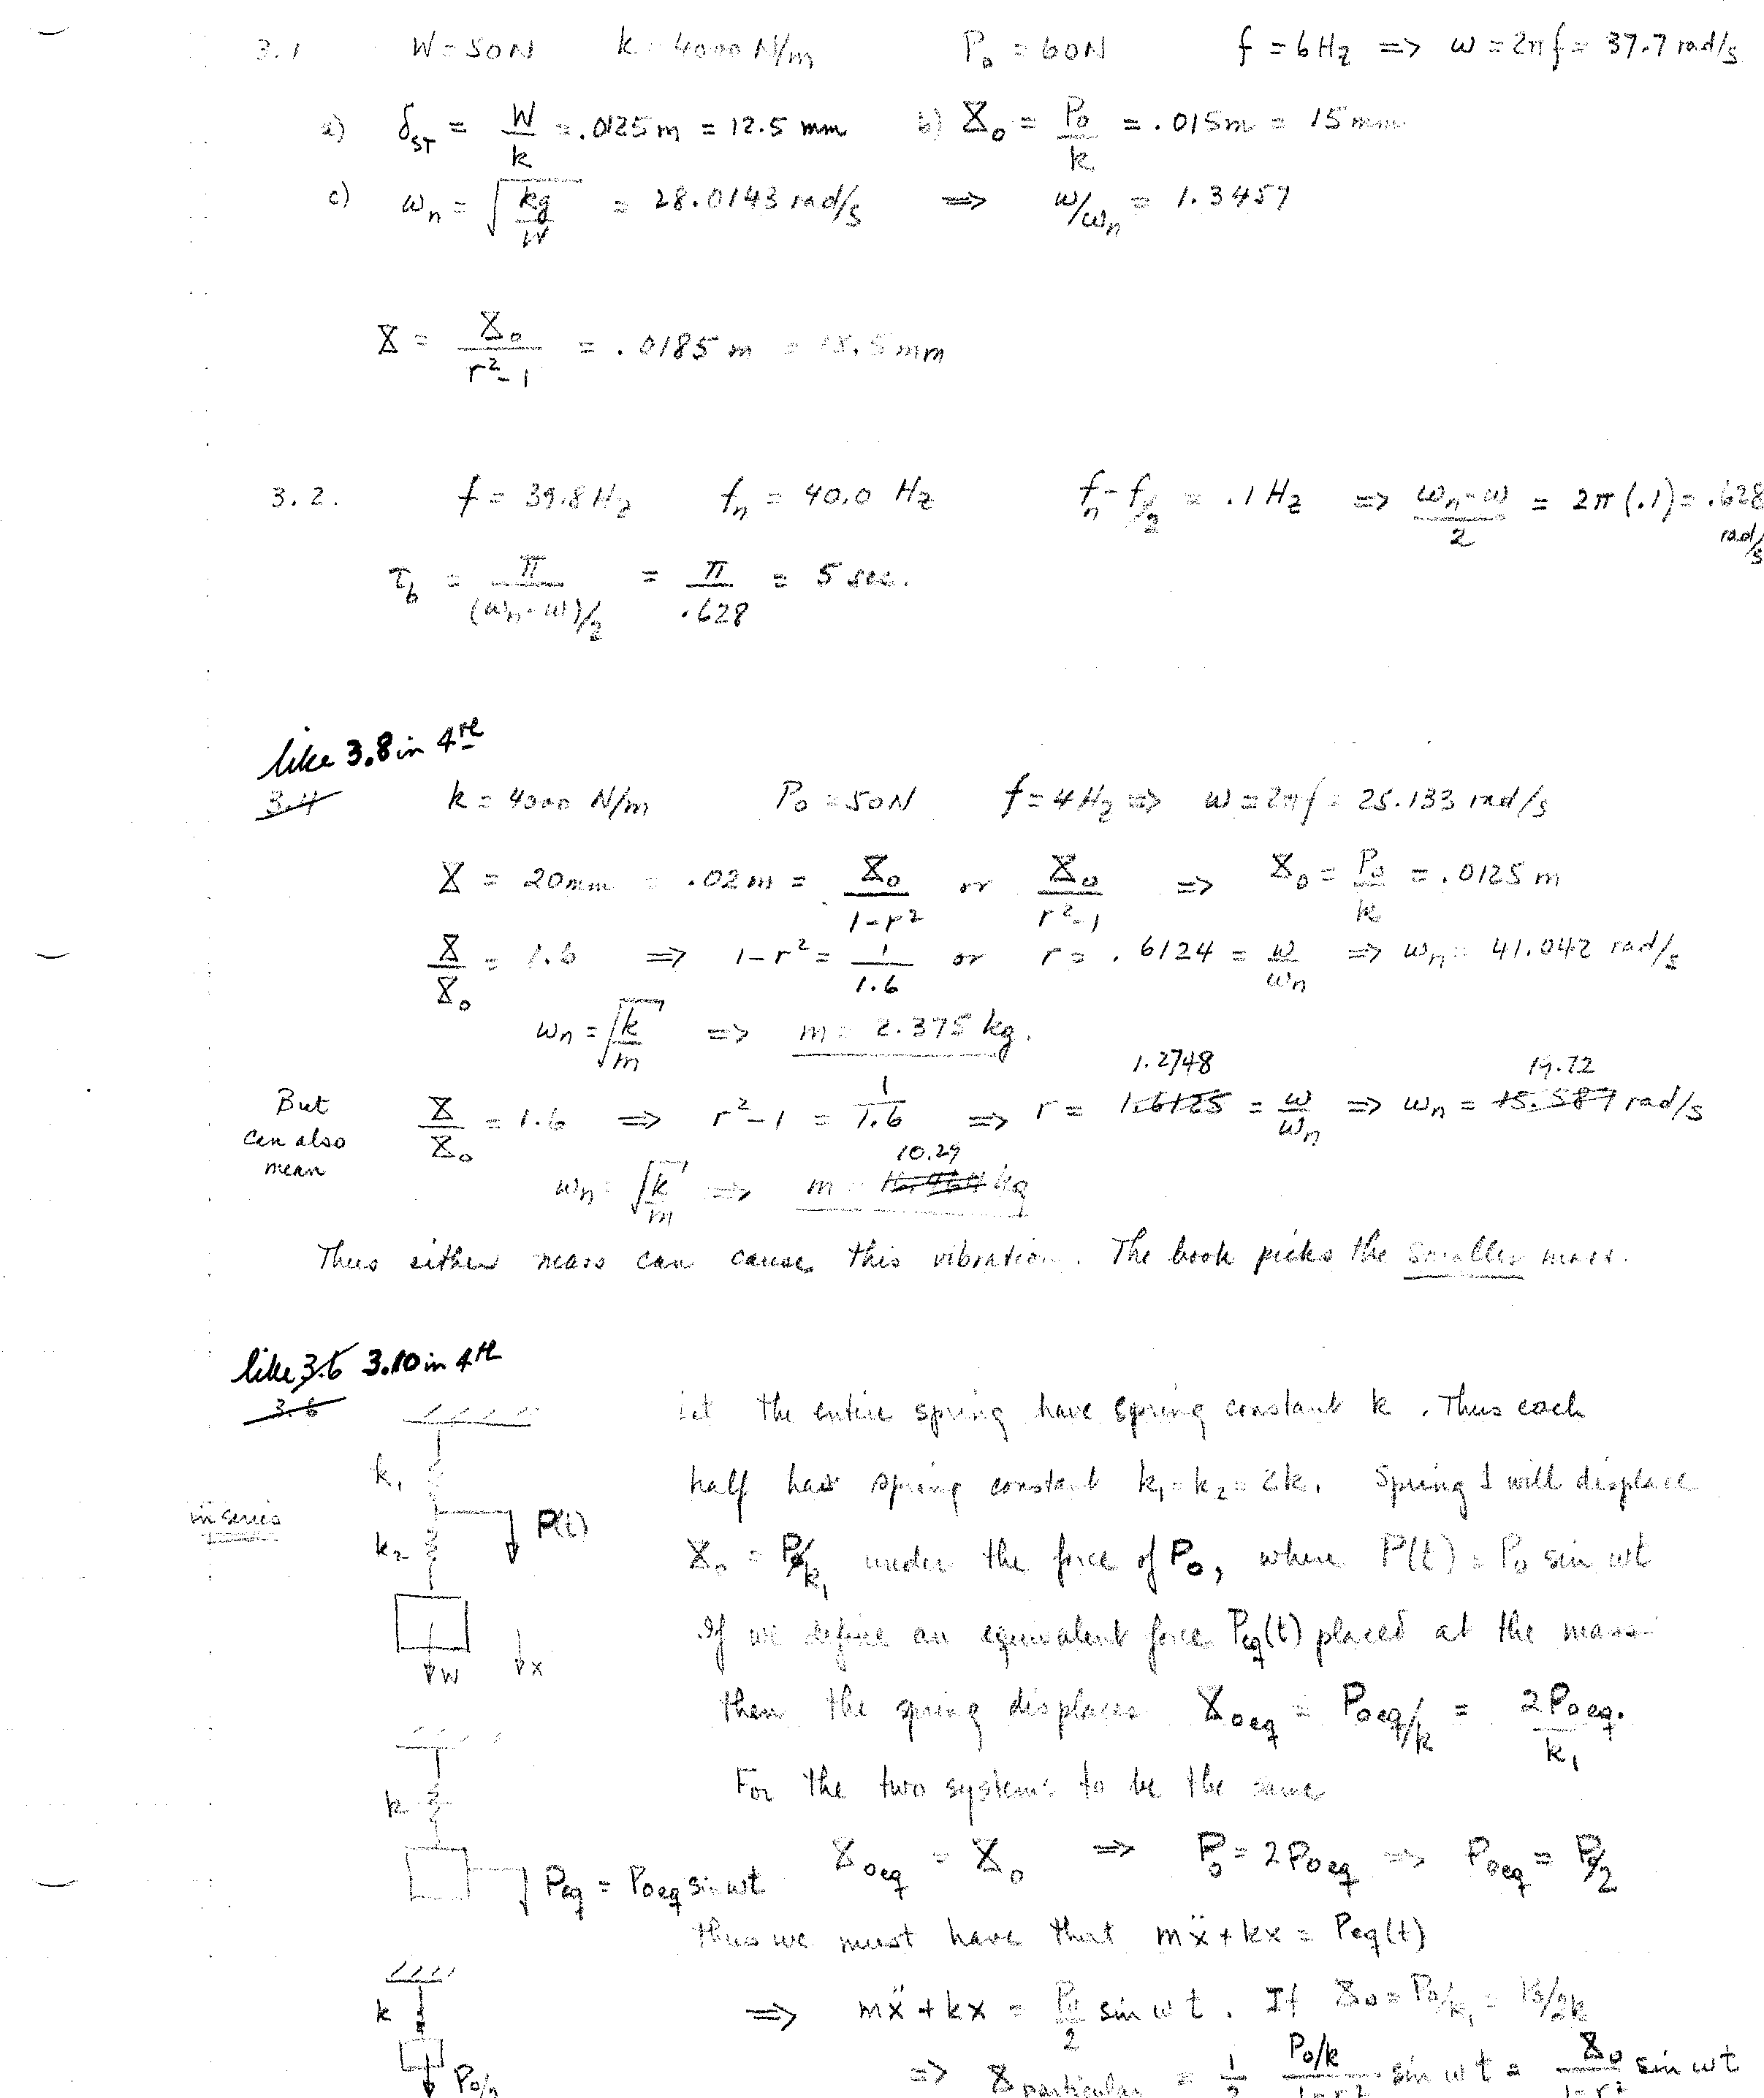 3.1 W = 50N k = 4000 N/m P₀ = 60N f = 6 Hz => ω = 2πf = 37.7 rad/s
a) δ_ST = W/k = .0125 m = 12.5 mm b) X₀ = P₀/k = .015m = 15 mm
c) ωn = √(kg/W) = 28.0143 rad/s => ω/ωn = 1.3457
X = X₀/(r²-1) = .0185 m = 18.5 mm
3.2. f = 39.8 Hz fn = 40.0 Hz fn-f/2 = .1 Hz => (ωn-ω)/2 = 2π(.1) = .628 rad/s
τb = π/((ωn-ω)/2) = π/.628 = 5 sec.
like 3.8 in 4th
3.4 k = 4000 N/m P₀ = 50N f = 4 Hz => ω = 2πf = 25.133 rad/s
X = 20mm = .02 m = X₀/(1-r²) or X₀/(r²-1) => X₀ = P₀/k = .0125 m
X/X₀ = 1.6 => 1-r² = 1/1.6 or r = .6124 = ω/ωn => ωn = 41.042 rad/s
ωn = √(k/m) => m = 2.375 kg.
1.2748 19.72
But can also mean X/X₀ = 1.6 => r²-1 = 1/1.6 => r = 1.6125 = ω/ωn => ωn = 15.587 rad/s
10.29
ωn = √(k/m) => m = kg
Thus either mass can cause this vibration. The book picks the smaller mass.
like 3.6 3.10 in 4th
3.6
Let the entire spring have spring constant k. Thus each
k₁
half has spring constant k₁=k₂=2k. Spring 1 will displace
in series
P(t)
k₂
X₀ = P₀/k₁ under the force of P₀, where P(t) = P₀ sin ωt
If we define an equivalent force Peq(t) placed at the mass
W x
then the spring displaces X₀eq = P₀eq/k = 2P₀eq./k₁
For the two systems to be the same
k
X₀eq = X₀ => P₀ = 2P₀eq => P₀eq = P₀/2
Peq = P₀eq sin ωt
thus we must have that mẍ+kx = Peq(t)
k
=> mẍ+kx = P₀/2 sin ωt. If X₀ = P₀/k₁ = P₀/2k
P₀/2
=> x particular = 1/2 (P₀/k)/(1-r²) sin ωt = X₀/(1-r²) sin ωt